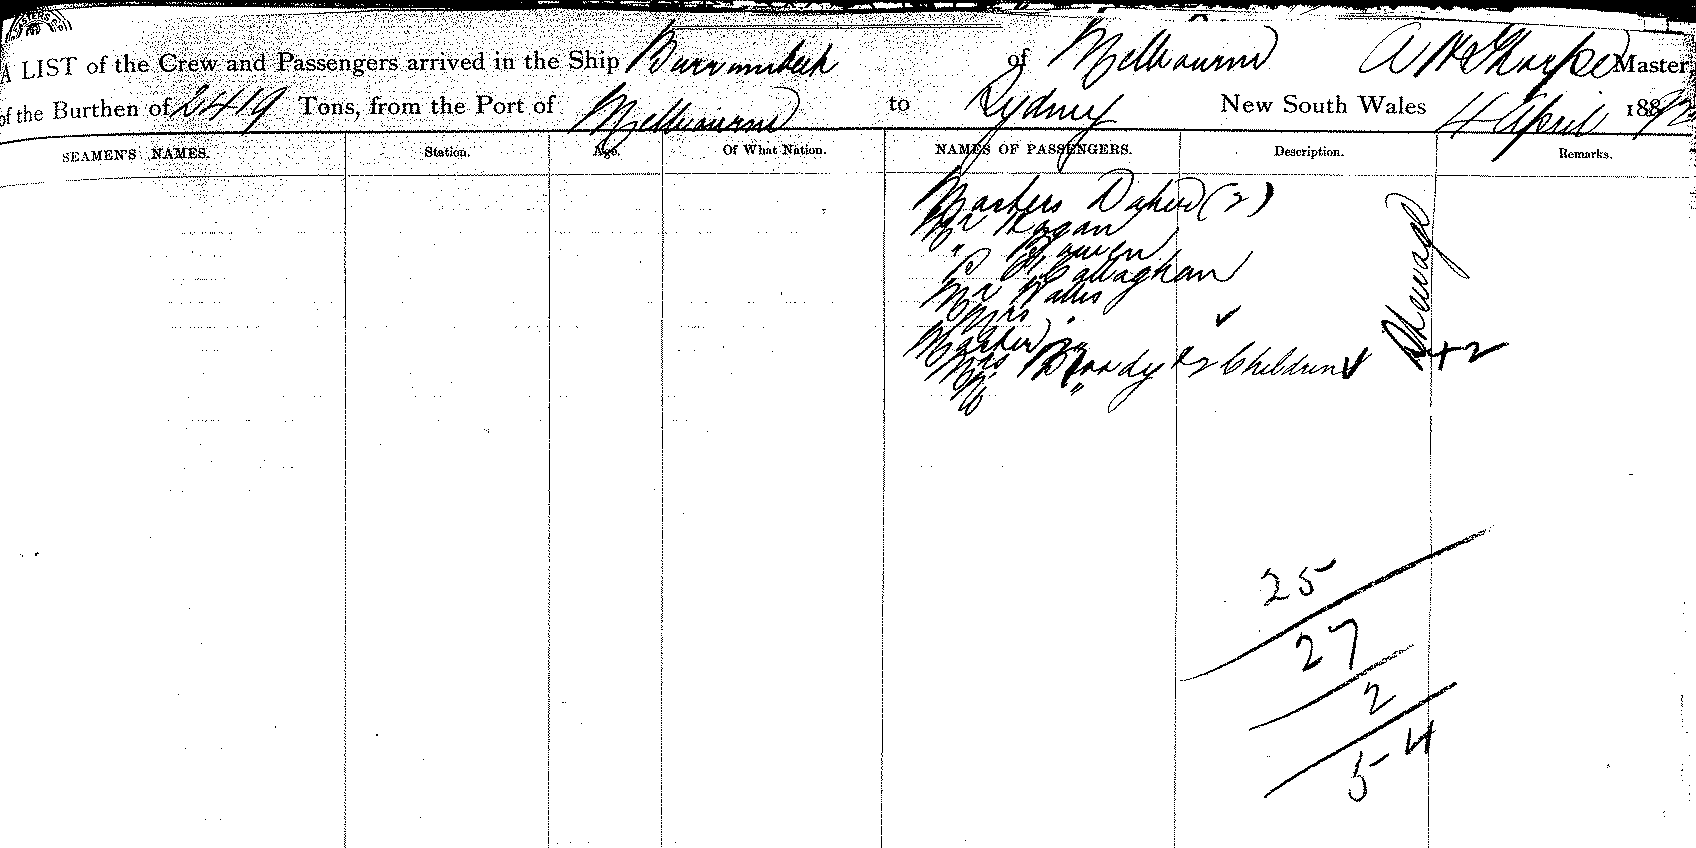 A LIST of the Crew and Passengers arrived in the Ship Burrumbeet of Melbourne A W Thorpe Master,
of the Burthen of 2419 Tons, from the Port of Melbourne to Sydney New South Wales 4 April 1892
SEAMEN'S NAMES. Station. Age. Of What Nation. NAMES OF PASSENGERS. Description. Remarks.
Masters (2)
Mr Hogan
" Bowen
P O'Callaghan
Mr Wallis
Mrs "
Master "
Mrs Broady & 2 Children
Mr "
Steerage
+2
25
27
2
54